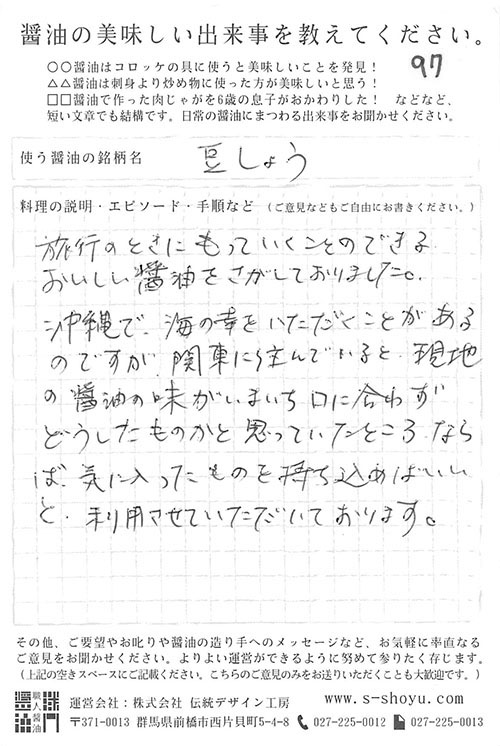 醤油の美味しい出来事を教えてください。
○○醤油はコロッケの具に使うと美味しいことを発見！
97
△△醤油は刺身より炒め物に使った方が美味しいと思う！
□□醤油で作った肉じゃがを6歳の息子がおかわりした！　などなど、
短い文章でも結構です。日常の醤油にまつわる出来事をお聞かせください。
使う醤油の銘柄名
豆しょう
料理の説明・エピソード・手順など（ご意見などもご自由にお書きください。）
旅行のときにもっていくことのできる
おいしい醤油をさがしておりました。
沖縄で、海の幸をいただくことがある
のですが、関東に住んでいると、現地
の醤油の味がいまいち口に合わず
どうしたものかと思っていたところ、なら
ば、気に入ったものを持ち込めばいい
と、利用させていただいております。
その他、ご要望やお叱りや醤油の造り手へのメッセージなど、お気軽に率直なる
ご意見をお聞かせください。よりよい運営ができるように努めて参りたく存じます。
（上記の空きスペースにご記載ください。こちらのご意見のみをお送りいただくことも大歓迎です。）
職人醤油
運営会社：株式会社 伝統デザイン工房
www.s-shoyu.com
〒371-0013 群馬県前橋市西片貝町5-4-8
027-225-0012
027-225-0013